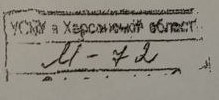 УСМИ в Харсонской област
М-72